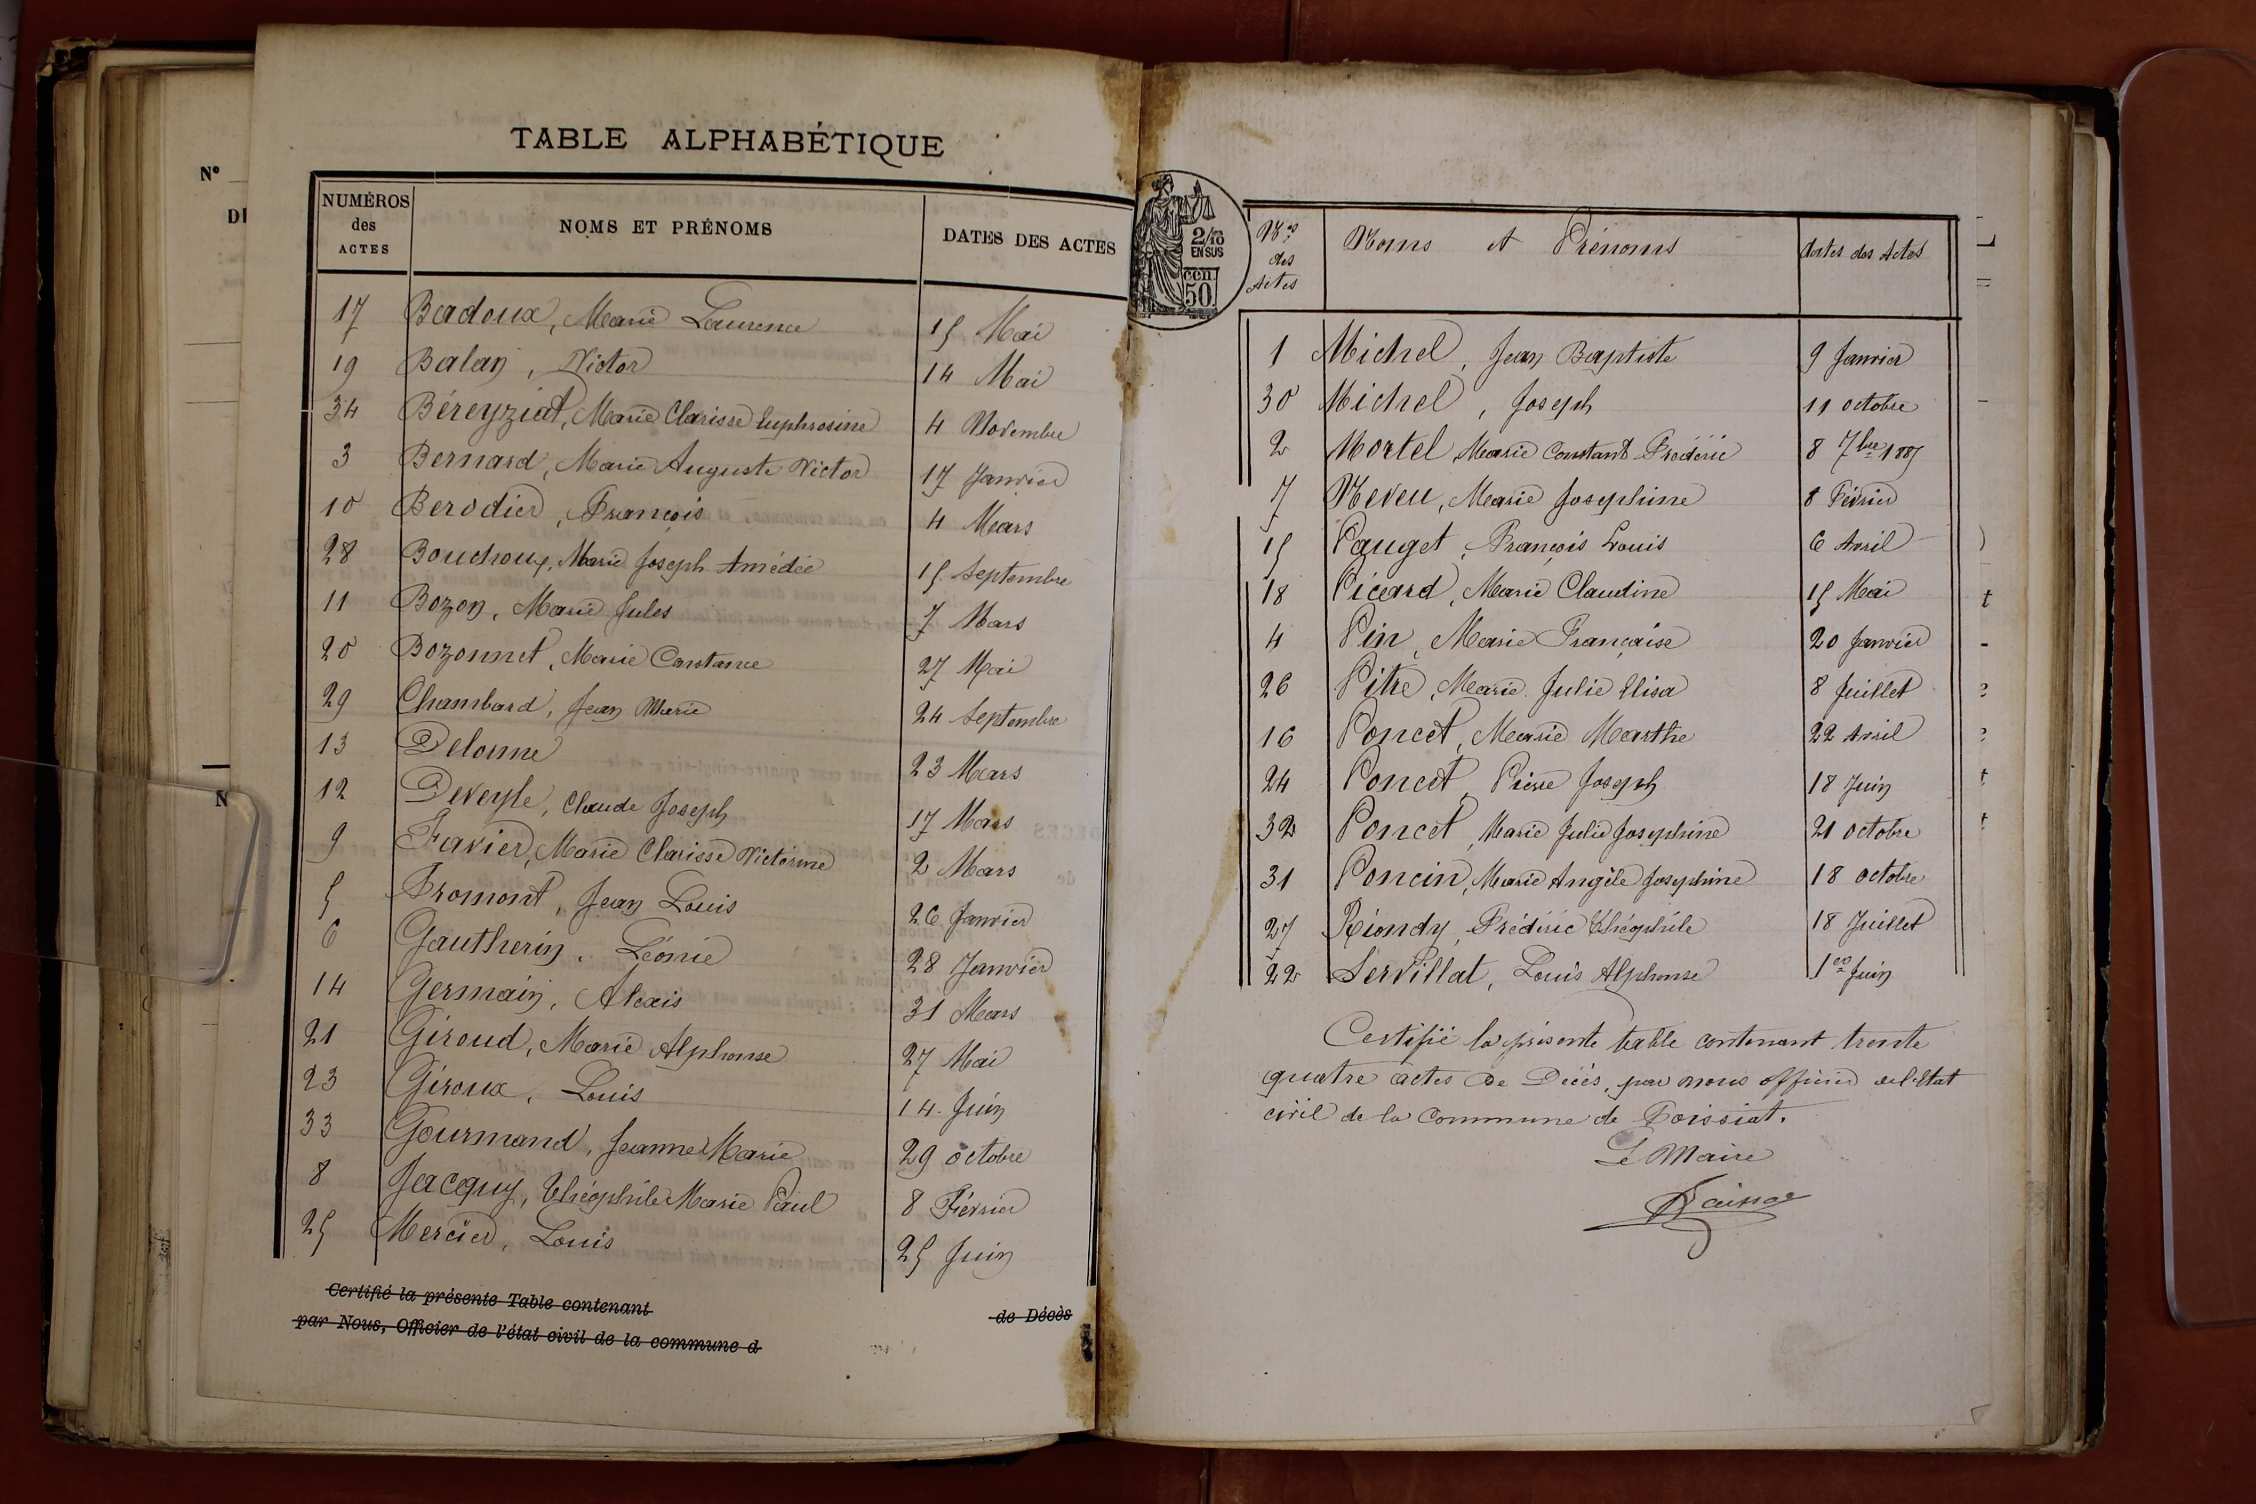 N°
DI
N
TABLE ALPHABÉTIQUE
NUMÉROS des ACTES NOMS ET PRÉNOMS DATES DES ACTES
17 Badoux, Marie Laurence 15 Mai
19 Balan, Victor 14 Mai
34 Béreyziat, Marie Clarisse Euphrosine 4 Novembre
3 Bernard, Marie Auguste Victor 17 Janvier
10 Berodier, François 4 Mars
28 Bouchoux, Marie Joseph Amédée 15 Septembre
11 Bozon, Marie Jules 7 Mars
20 Bozonnet, Marie Constance 27 Mai
29 Chambard, Jean Marie 24 Septembre
13 Delorme 23 Mars
12 Deveyle, Claude Joseph 17 Mars
9 Favier, Marie Clarisse Victorine 2 Mars
5 Fromont, Jean Louis 26 Janvier
6 Gautherin, Léonie 28 Janvier
14 Germain, Alexis 31 Mars
21 Giroud, Marie Alphonse 27 Mai
23 Giroux, Louis 14 Juin
33 Gourmand, Jeanne Marie 29 octobre
8 Jacquy, Théophile Marie Paul 8 Février
25 Mercier, Louis 25 Juin
Certifié la présente Table contenant de Décès
par Nous, Officier de l'état civil de la commune d
2/10
EN SUS
50 cen.
Nos des Actes Noms et Prénoms dates des Actes
1 Michel, Jean Baptiste 9 Janvier
30 Michel, Joseph 11 octobre
2 Mortel, Marie Constant Frédéric 8 7bre 1885
7 Neveu, Marie Josephine 8 Février
15 Pauget, François Louis 6 Avril
18 Picard, Marie Claudine 15 Mai
4 Pin, Marie Française 20 Janvier
26 Pitre, Marie Julie Elisa 8 Juillet
16 Poncet, Marie Marthe 22 Avril
24 Poncet, Pierre Joseph 18 Juin
32 Poncet, Marie Julie Josephine 21 octobre
31 Poncin, Marie Angèle Josephine 18 octobre
27 Riondy, Frédéric Théophile 18 Juillet
22 Servillat, Louis Alphonse 1er Juin
Certifié la présente table contenant trente
quatre actes de Décès, par nous officier de l'Etat
civil de la Commune de Foissiat.
Le Maire